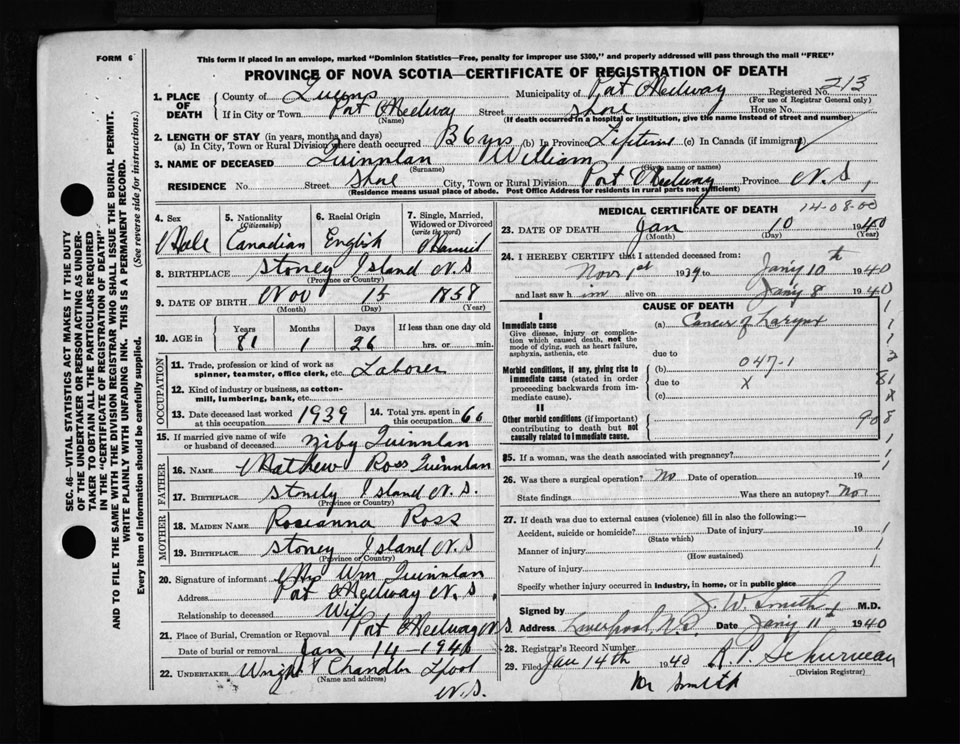 FORM 6
This form if placed in an envelope, marked "Dominion Statistics—Free, penalty for improper use $300," and properly addressed will pass through the mail "FREE"
PROVINCE OF NOVA SCOTIA—CERTIFICATE OF REGISTRATION OF DEATH
1. PLACE OF DEATH
County of Queens Municipality of Port Medway Registered No. 213
(For use of Registrar General only)
If in City or Town Port Medway Street Shore House No.
(Name) (If death occurred in a hospital or institution, give the name instead of street and number)
2. LENGTH OF STAY (in years, months and days)
(a) In City, Town or Rural Division where death occurred 36 yrs (b) In Province Lifetime (c) In Canada (if immigrant)
3. NAME OF DECEASED Quinnlan William
(Surname) (Given name or names)
RESIDENCE No Street Shore City, Town or Rural Division Port Medway Province N.S.
(Residence means usual place of abode. Post Office Address for residents in rural parts not sufficient)
4. Sex Male
5. Nationality (Citizenship) Canadian
6. Racial Origin English
7. Single, Married, Widowed or Divorced (write the word) Married
8. BIRTHPLACE Stoney Island N S
(Province or Country)
9. DATE OF BIRTH Nov 15 1858
(Month) (Day) (Year)
10. AGE in Years 81 Months 1 Days 26 If less than one day old hrs. or min.
OCCUPATION
11. Trade, profession or kind of work as spinner, teamster, office clerk, etc. Laborer
12. Kind of industry or business, as cotton-mill, lumbering, bank, etc.
13. Date deceased last worked at this occupation 1939 14. Total yrs. spent in this occupation 60
15. If married give name of wife or husband of deceased Ziby Quinnlan
FATHER
16. NAME Mathew Ross Quinnlan
17. BIRTHPLACE Stonely Island N.S.
(Province or Country)
MOTHER
18. MAIDEN NAME Roseanna Ross
19. BIRTHPLACE Stoney Island N S
(Province or Country)
20. Signature of informant Mrs Wm Quinnlan
Address Port Medway N.S.
Relationship to deceased Wife
21. Place of Burial, Cremation or Removal Port Medway N S
Date of burial or removal Jan 14 - 1940
22. UNDERTAKER Wright & Chandler Lpool
(Name and address) N.S.
MEDICAL CERTIFICATE OF DEATH 14-08-00
23. DATE OF DEATH Jan 10 1940
(Month) (Day) (Year)
24. I HEREBY CERTIFY that I attended deceased from:
Nov 1st 1939 to Jan'y 10th 1940
and last saw him alive on Jan'y 8 1940
CAUSE OF DEATH
I
Immediate cause
Give disease, injury or complication which caused death, not the mode of dying, such as heart failure, asphyxia, asthenia, etc
(a) Cancer of Larynx
due to
Morbid conditions, if any, giving rise to immediate cause (stated in order proceeding backwards from immediate cause).
(b) 047-1
due to X
(c)
II
Other morbid conditions (if important) contributing to death but not causally related to immediate cause.
908
25. If a woman, was the death associated with pregnancy?
26. Was there a surgical operation? No Date of operation 19
State findings Was there an autopsy? No
27. If death was due to external causes (violence) fill in also the following:—
Accident, suicide or homicide? Date of injury 19
(State which)
Manner of injury
(How sustained)
Nature of injury
Specify whether injury occurred in industry, in home, or in public place
Signed by J. W. Smith M.D.
Address Liverpool, N.S. Date Jan'y 11th 1940
28. Registrar's Record Number
29. Filed Jan 14th 1940 R. P. Schurman
(Division Registrar)
Mr Smith
SEC. 46—VITAL STATISTICS ACT MAKES IT THE DUTY
OF THE UNDERTAKER OR PERSON ACTING AS UNDER-
TAKER TO OBTAIN ALL THE PARTICULARS REQUIRED
IN THE "CERTIFICATE OF REGISTRATION OF DEATH"
AND TO FILE THE SAME WITH THE DIVISION REGISTRAR WHO SHALL ISSUE THE BURIAL PERMIT.
WRITE PLAINLY WITH UNFADING INK. THIS IS A PERMANENT RECORD.
Every item of information should be carefully supplied. (See reverse side for instructions.)